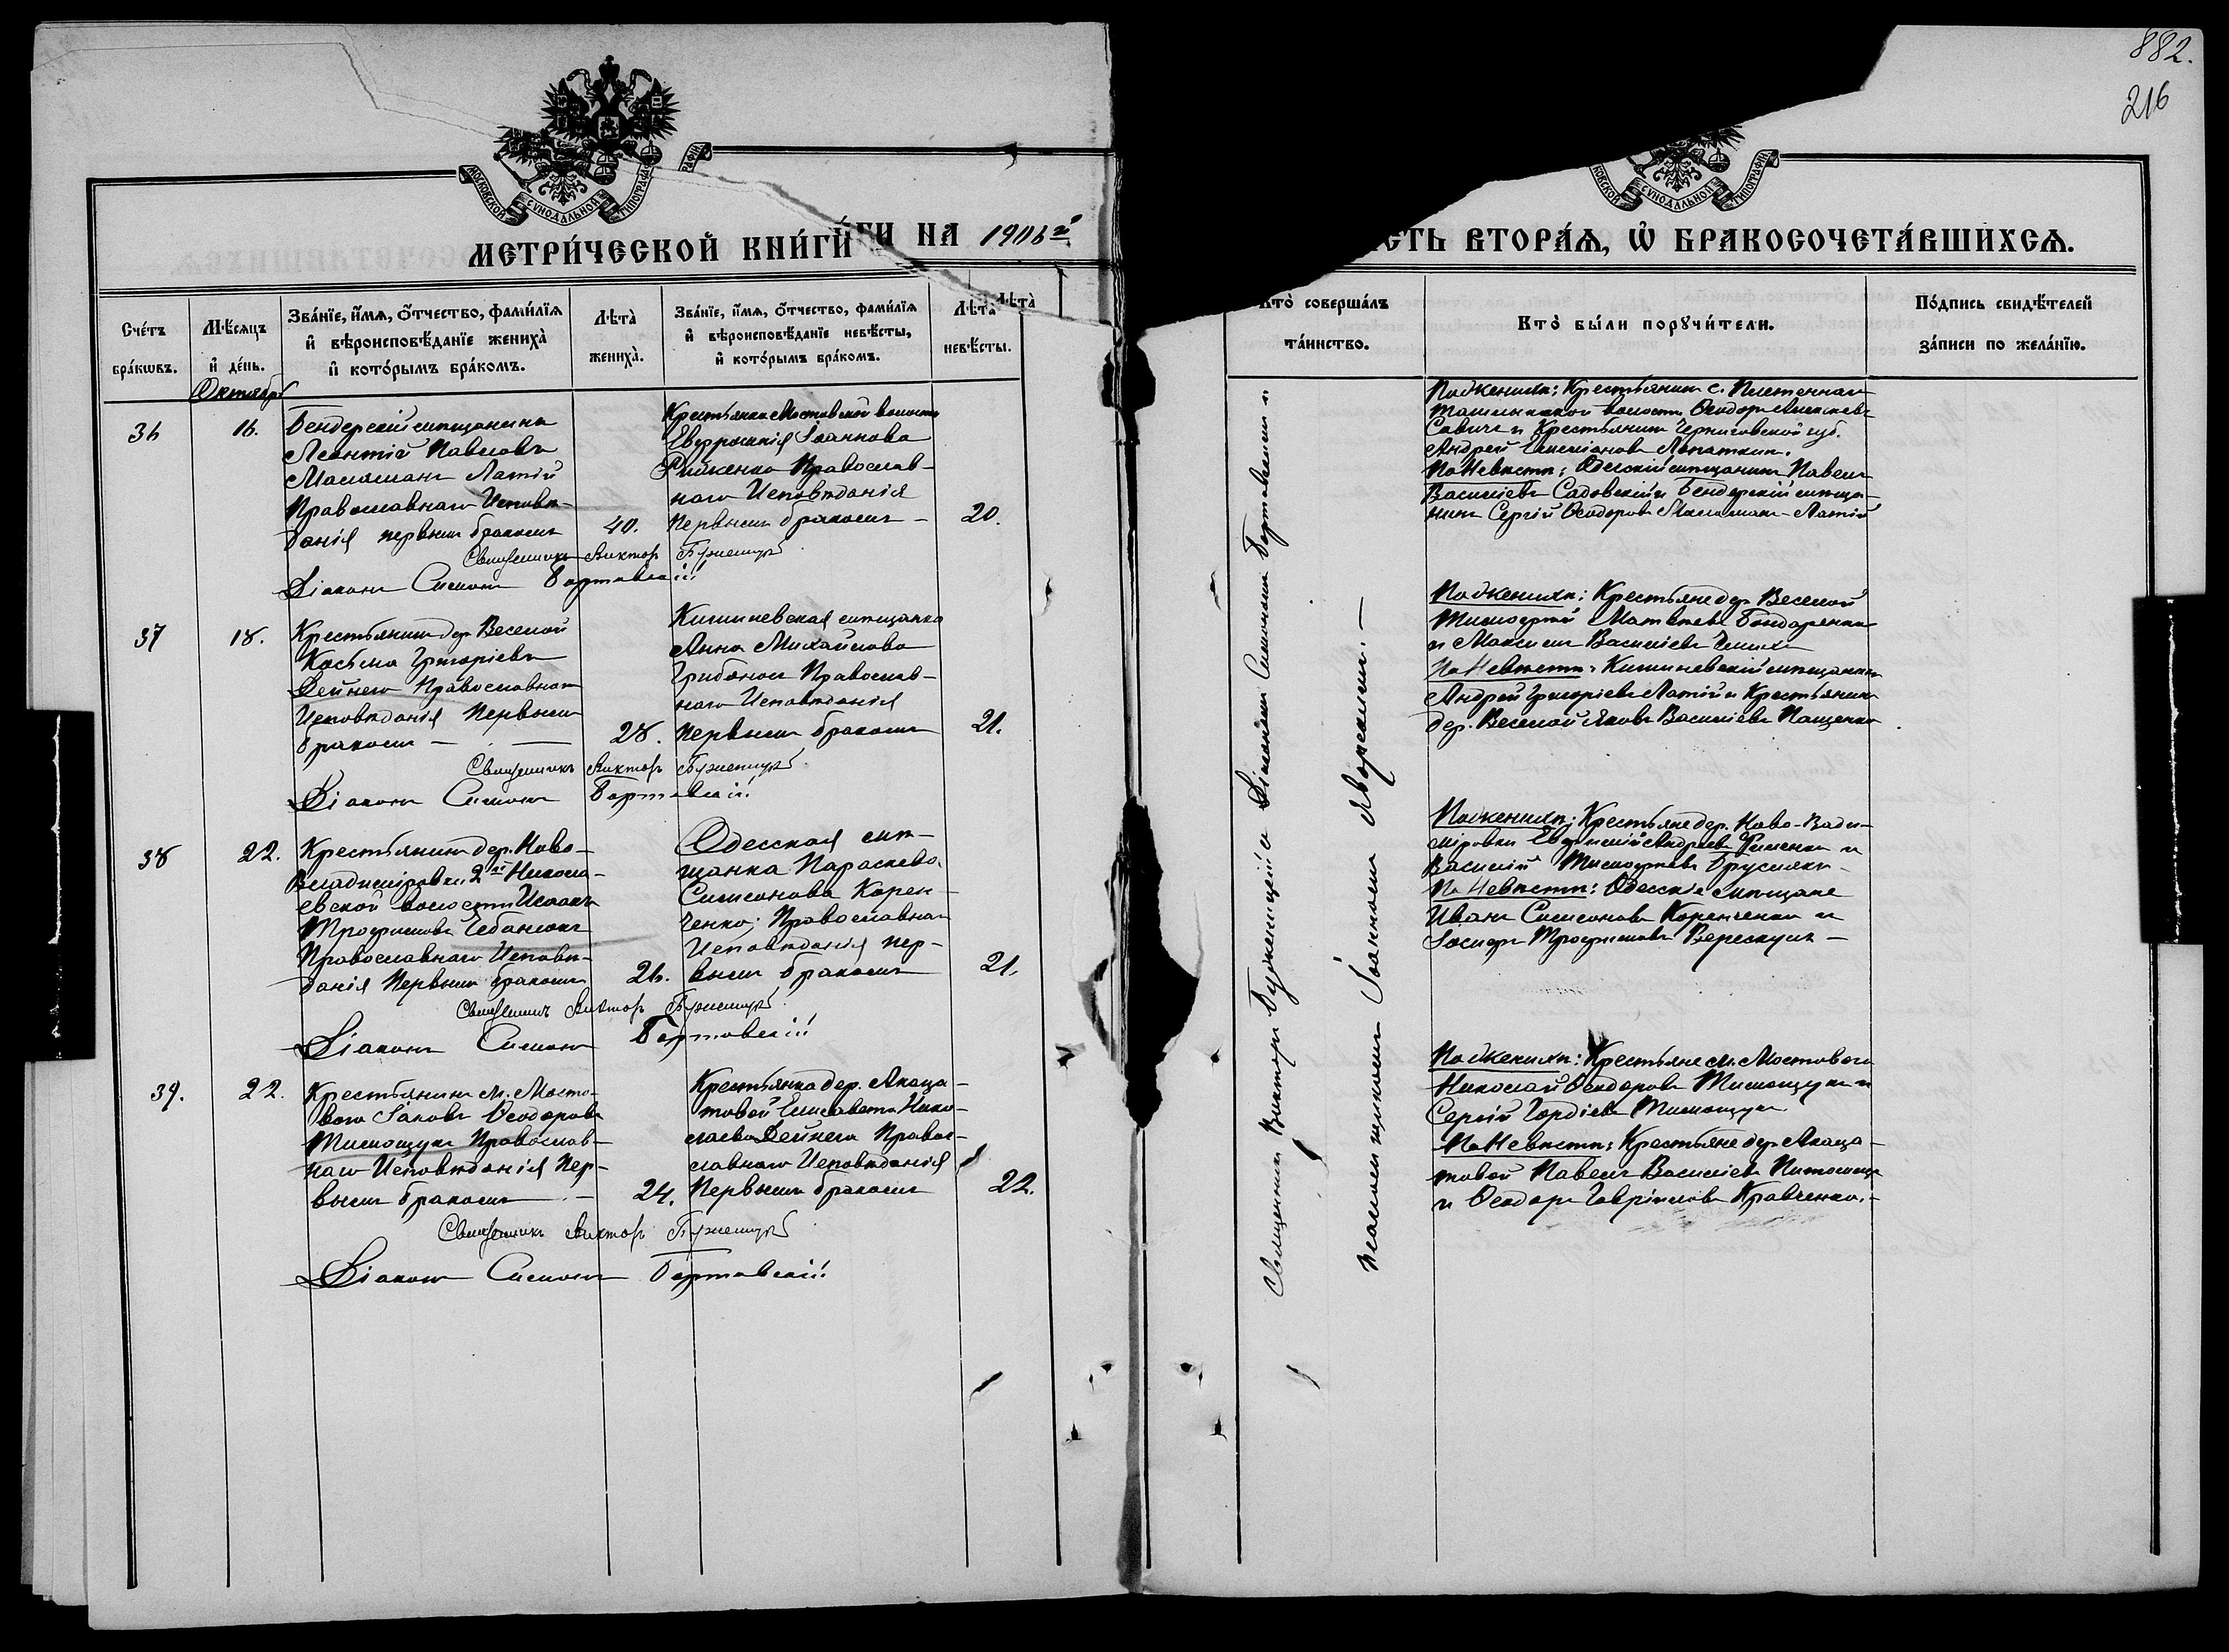 882.
216
МОСКОВСКОЙ СѴНОДАЛЬНОЙ ТИПОГРАФІИ
МЕТРИ́ЧЕСКОЙ КНИ́ГИ НА 1906 г.
СТЬ ВТОРА́Ѧ, Ѡ БРАКОСОЧЕТА́ВШИХСѦ.
Сче́тъ бра́кѡвъ.
Мѣ́сяцъ и҆ де́нь.
Зва́нїе, и҆́мѧ, ѻ҆́тчество, фами́лїѧ и҆ вѣроисповѣ́данїе жениха̀ и҆ кото́рымъ бра́комъ.
Лѣта̀ жениха̀.
Зва́нїе, и҆́мѧ, ѻ҆́тчество, фами́лїѧ и҆ вѣроисповѣ́данїе невѣ́сты, и҆ кото́рымъ бра́комъ.
Лѣта̀ невѣ́сты.
Кто̀ соверша́лъ та́инство.
Кто̀ бы́ли порꙋчи́тели.
По́дпись свидѣ́телей за́писи по жела́нїю.
Октябрь
36
16.
Бендерскій мѣщанинъ
Леонтій Павловъ
Маламанъ Латій
Православнаго Исповѣ-
данія первымъ бракомъ
40.
Крестьянка Мостовской волости
Евфросинія Іоаннова
Рийженко Православ-
наго Исповѣданія
первымъ бракомъ –
20.
Священникъ Викторъ Буженицкій
Діаконъ Симонъ Бортовскій
37
18.
Крестьянинъ дер. Веселой
Косьма Григоріевъ
Дейнега Православнаго
Исповѣданія Первымъ
бракомъ –
28.
Кишиневская мѣщанка
Анна Михайлова
Грибанов Православ-
наго Исповѣданія
первымъ бракомъ
21.
Священникъ Викторъ Буженицкій
Діаконъ Симонъ Бортовскій
38
22.
Крестьянинъ дер. Ново-
Владиміровки 2й Никола-
евской волости Исаакъ
Трофимовъ Чебанюкъ
Православнаго Исповѣ-
данія Первымъ бракомъ
26.
Одесская мѣ-
щанка Параскева
Симеонова Корен-
ченко; Православнаго
Исповѣданія пер-
вымъ бракомъ
21.
Священникъ Викторъ Буженицкій
Діаконъ Симонъ Бортовскій
39.
22.
Крестьянинъ м. Мосто-
вого Іаковъ Ѳеодоровъ
Тимощукъ Православ-
наго Исповѣданія Пер-
вымъ бракомъ –
24.
Крестьянка дер. Акаца-
товой Елисавета Нико-
лаева Дейнега Правос-
лавнаго Исповѣданія
Первымъ бракомъ
22.
Священникъ Викторъ Буженицкій
Діаконъ Симонъ Бортовскій
Священникъ Викторъ Буженицкій съ Діакономъ Симономъ Бортовскимъ и
Псаломщикомъ Іоанномъ Яворскимъ. –
По Женихѣ: Крестьянинъ с. Плетеннаго
Ташлыкской волости Ѳеодоръ Алексѣевъ
Савичъ и Крестьянинъ Черниговской губ.
Андрей Лопаткин.
По Невѣстѣ: Одесскій мѣщанинъ Павелъ
Василіевъ Садовскій и Бендерскій мѣща-
нинъ Сергій Ѳеодоровъ Маламанъ-Латій
По Женихѣ: Крестьяне дер. Веселой
Тимофей Матвѣевъ Бондаренко
и Максимъ Василіевъ
По Невѣстѣ: Кишиневскій мѣщанинъ
Андрей Григоріевъ Латій и Крестьянинъ
дер. Веселой Яковъ Василіевъ Пащенко
По Женихѣ: Крестьяне дер. Ново-Влади-
міровки Евфимій Андреевъ и
Василій Тимофеевъ Бруслякъ –
По Невѣстѣ: Одесскіе мѣщане
Иванъ Симеоновъ Коренченко и
Іосифъ Трофимовъ Верескунъ –
По Женихѣ: Крестьяне м. Мостового
Николай Ѳеодоровъ Тимощукъ и
Сергій Гордіевъ Тимощукъ
По Невѣстѣ: Крестьяне дер. Акаца-
товой Павелъ Василіевъ
и Ѳеодоръ Гавріиловъ Кравченко. –